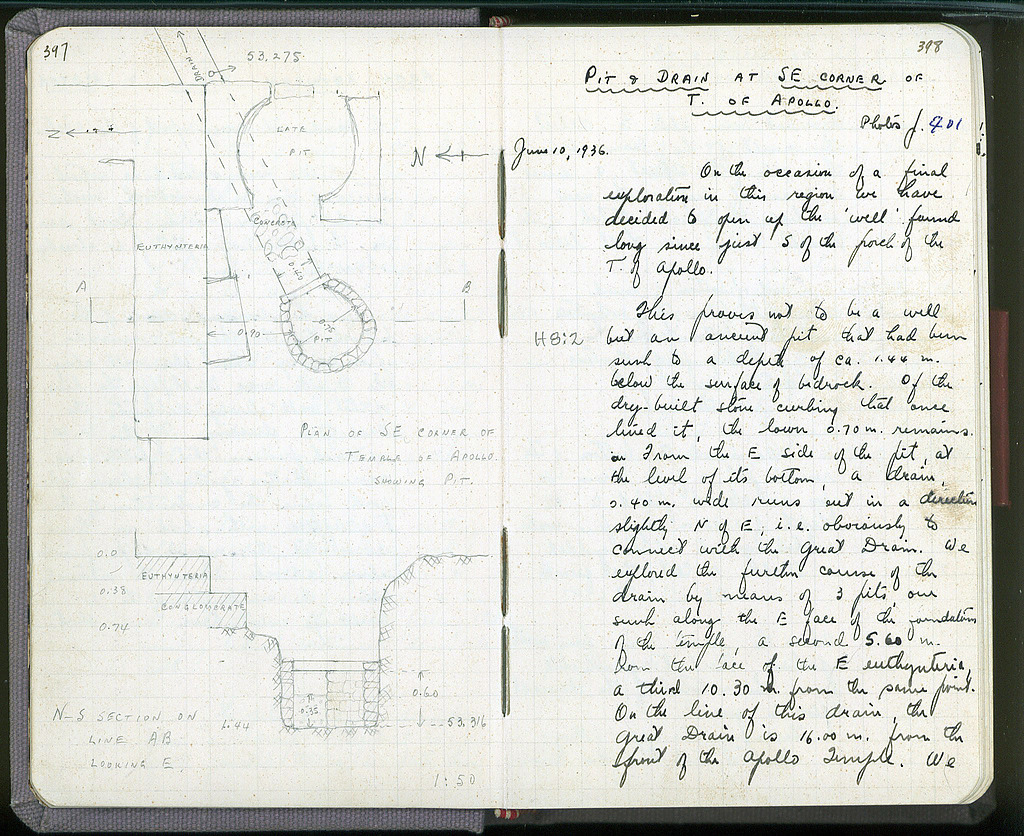 397
53,275
DRAIN
LATE
PIT
N
N
CONCRETE
EUTHYNTERIA
0.40
A
B
0.90
0.75
PIT
PLAN OF SE CORNER OF
TEMPLE OF APOLLO
SHOWING PIT.
0.0
EUTHYNTERIA
0.38
CONGLOMERATE
0.74
0.60
0.35
1.44
53,316
N-S SECTION ON
LINE AB
LOOKING E
1:50
398
PIT & DRAIN AT SE CORNER OF
T. OF APOLLO.
Photos J. 401
June 10, 1936.
On the occasion of a final
exploration in this region we have
decided to open up the 'well' found
long since just S of the porch of the
T. of Apollo.
This proves not to be a well
H8:2
but an ancient pit that had been
sunk to a depth of ca. 1.44 m.
below the surface of bedrock. Of the
dry-built stone curbing that once
lined it, the lower 0.70 m. remains.
From the E side of the pit, at
the level of its bottom, a drain,
0.40 m. wide runs out in a direction
slightly N of E, i.e. obviously to
connect with the Great Drain. We
explored the further course of the
drain by means of 3 pits, one
sunk along the E face of the foundations
of the temple, a second 5.60 m.
from the face of the E euthynteria,
a third 10.30 m. from the same point.
On the line of this drain, the
Great Drain is 16.00 m. from the
front of the Apollo Temple. We